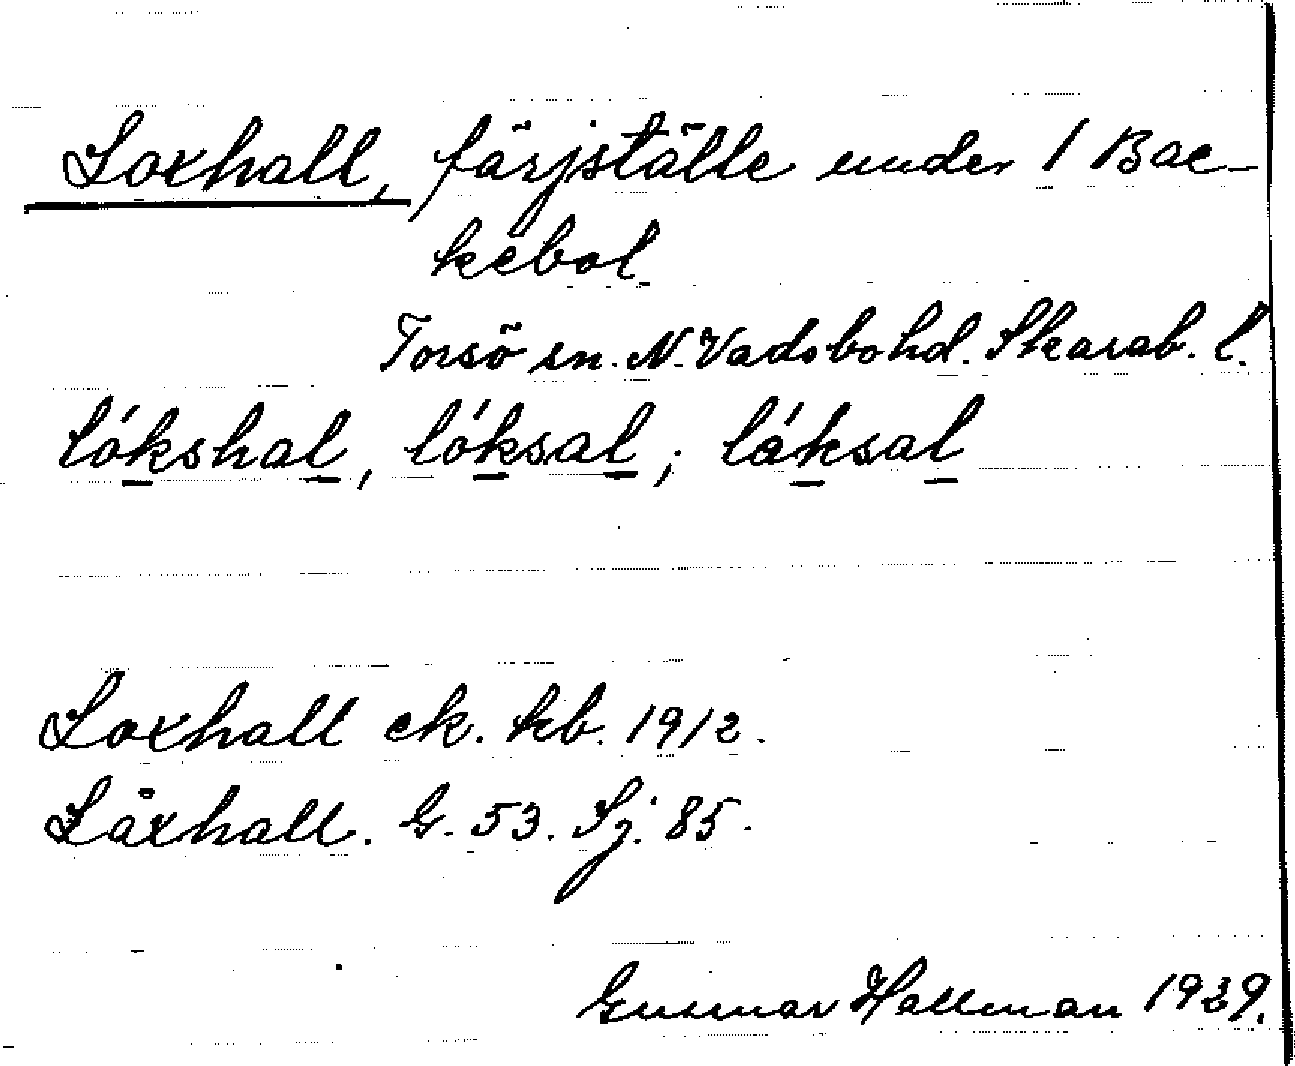 Loxhall, färjställe under 1 Bac-
kebol
Torsö sn. N. Vadsbo hd. Skarab. l.
lókshal, lóksal; láksal
Loxhall ek. kb. 1912.
Låxhall. G. 53. Sj. 85.
Gunnar Hallman 1939.